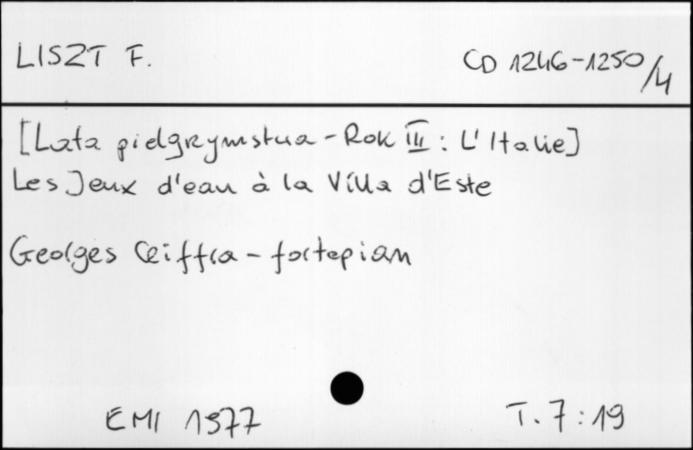 LISZT F.
CD 1246-1250/4
[Lata pielgrzymstwa - Rok III : L'Italie]
Les Jeux d'eau à la Villa d'Este
Georges Cziffra - fortepian
EMI 1977
T. 7:19